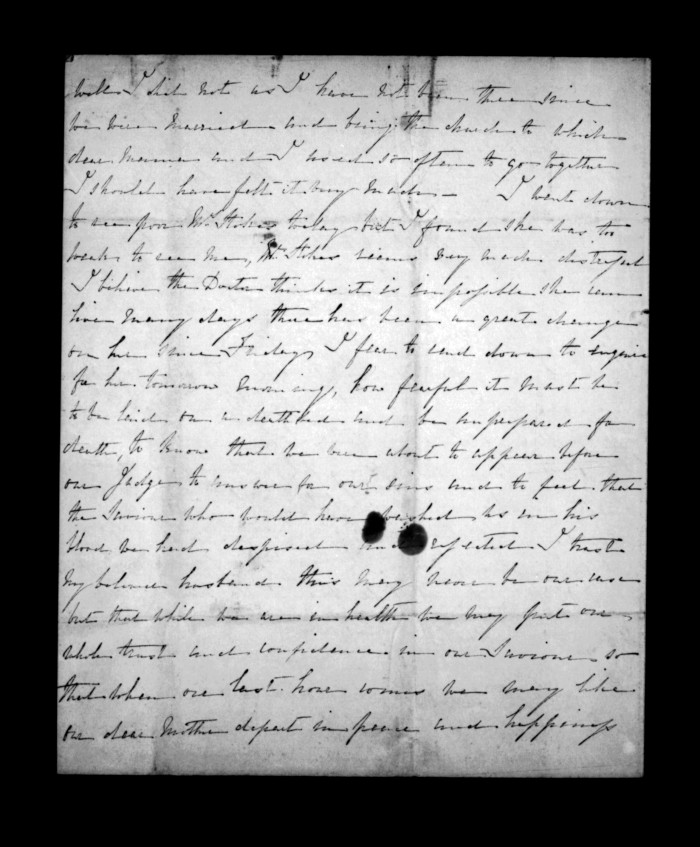 well I did not as I have not been there since
we were married and being the church to which
dear Mamma and I used so often to go together
I should have felt it very much — I went down
to see poor Mrs Stokes today but I found she was too
weak to see me, Mr Stokes seems very much distressed
I believe the Doctor thinks it is impossible she can
live many days there has been a great change
on her since Friday, I fear to send down to enquire
for her tomorrow morning, how fearful it must be
to be laid on a deathbed and be unprepared for
death, to know that we were about to appear before
our Judge to answer for our sins and to feel that
the Saviour who would have washed us in his
blood we had despised and rejected I trust
my beloved husband this may never be our case
but that while we are in health we may put our
whole trust and confidence in our Saviour so
that when our last hour comes we may like
our dear Mother depart in peace and happiness